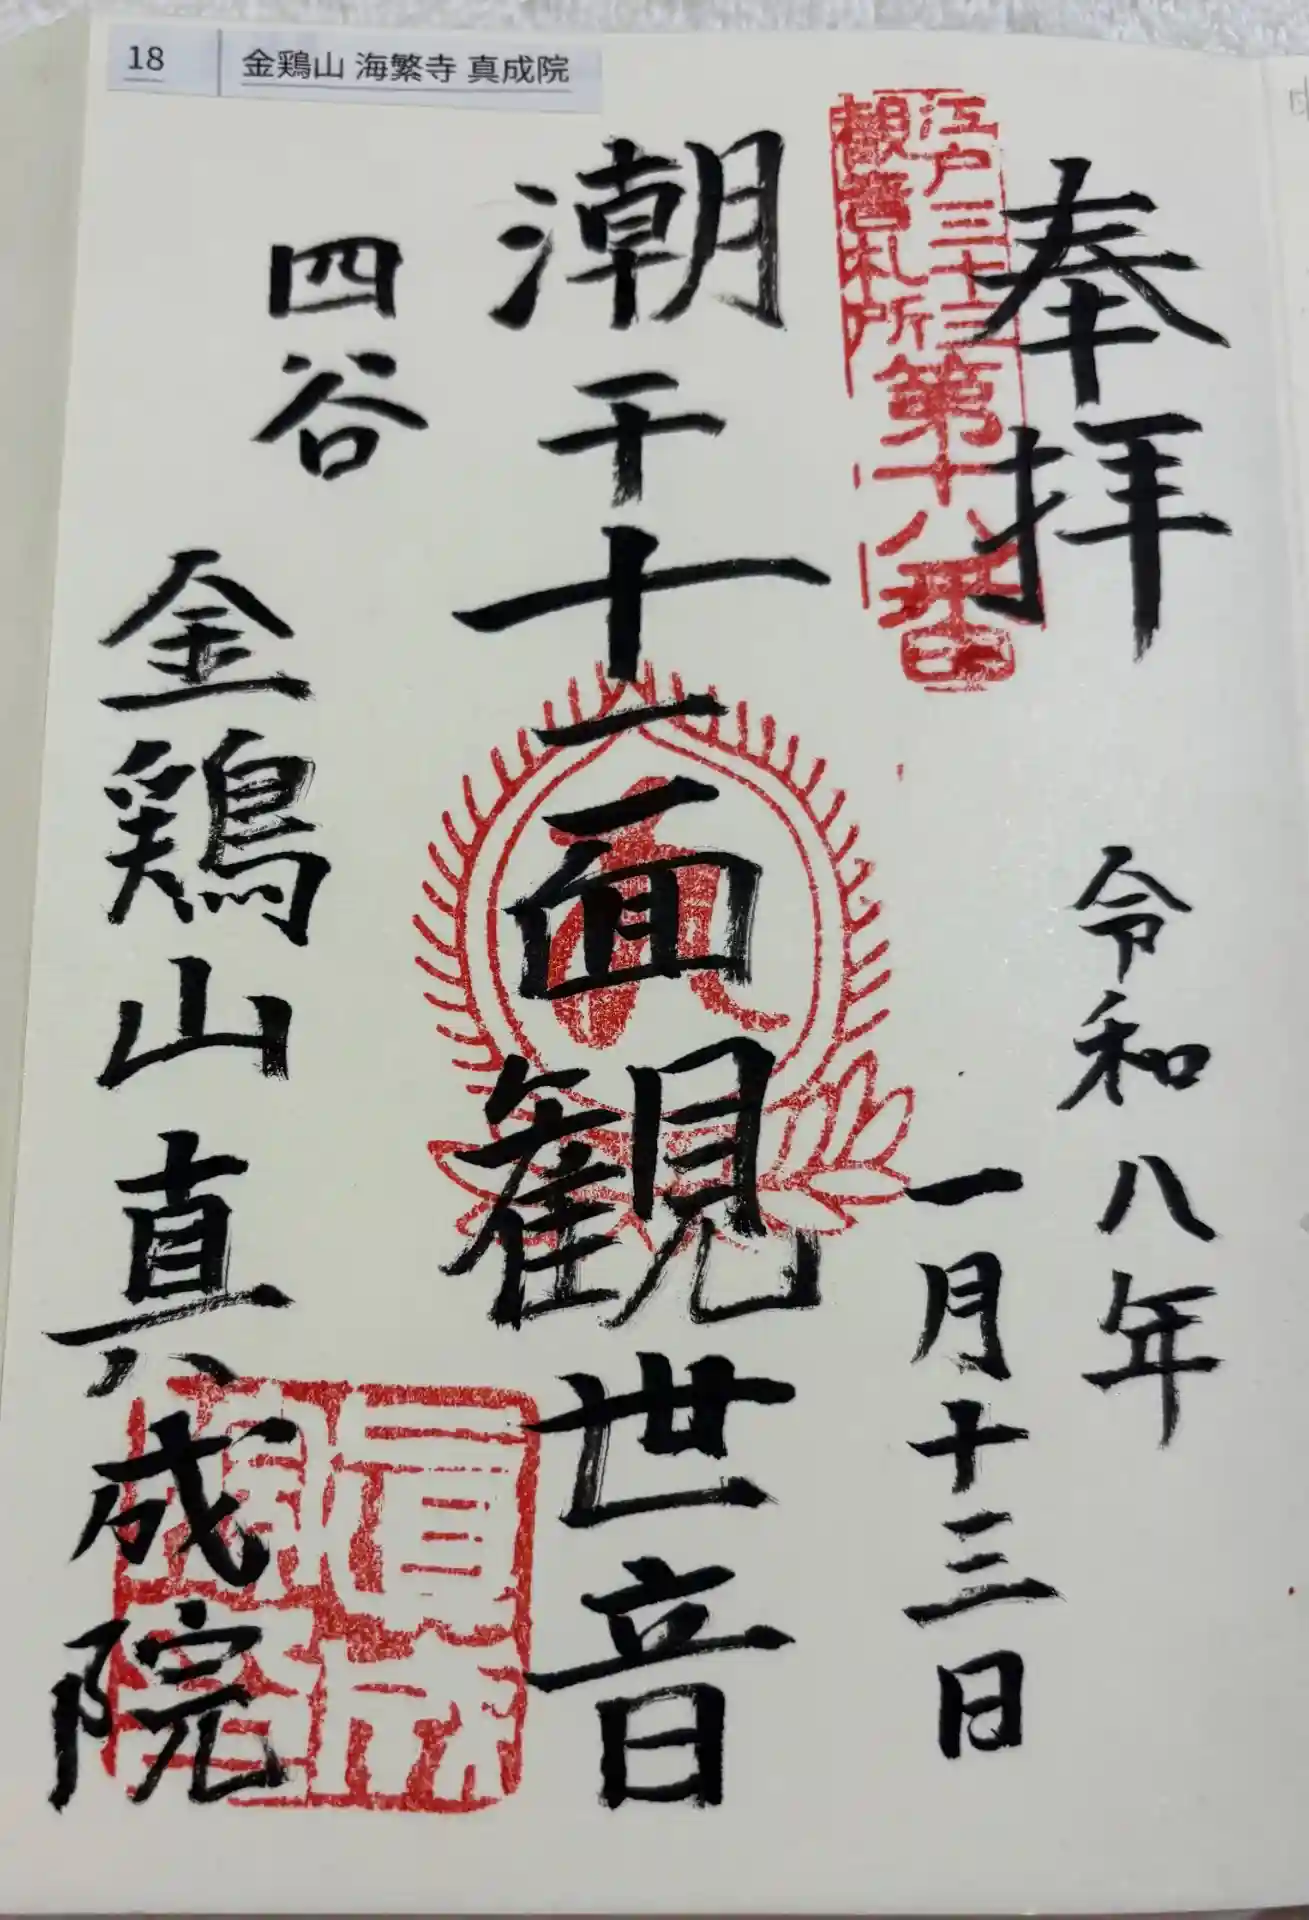 18 金鶏山 海繁寺 真成院
奉拝
令和八年
一月十三日
江戸三十三
観音札所
第十八番
潮干十一面観世音
四谷
金鶏山真成院